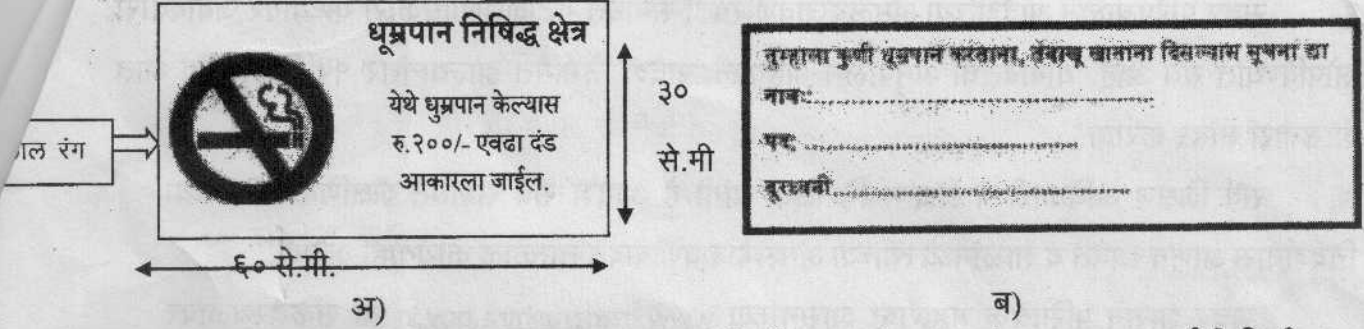 धूम्रपान निषिद्ध क्षेत्र
येथे धुम्रपान केल्यास
रु.२००/- एवढा दंड
आकारला जाईल.
ाल रंग
३०
से.मी
६० से.मी.
अ)
तुम्हाला कुणी धूम्रपान करताना, तंबाखू खाताना दिसल्यास सूचना द्या
नाव:
पद:
दूरध्वनी
ब)